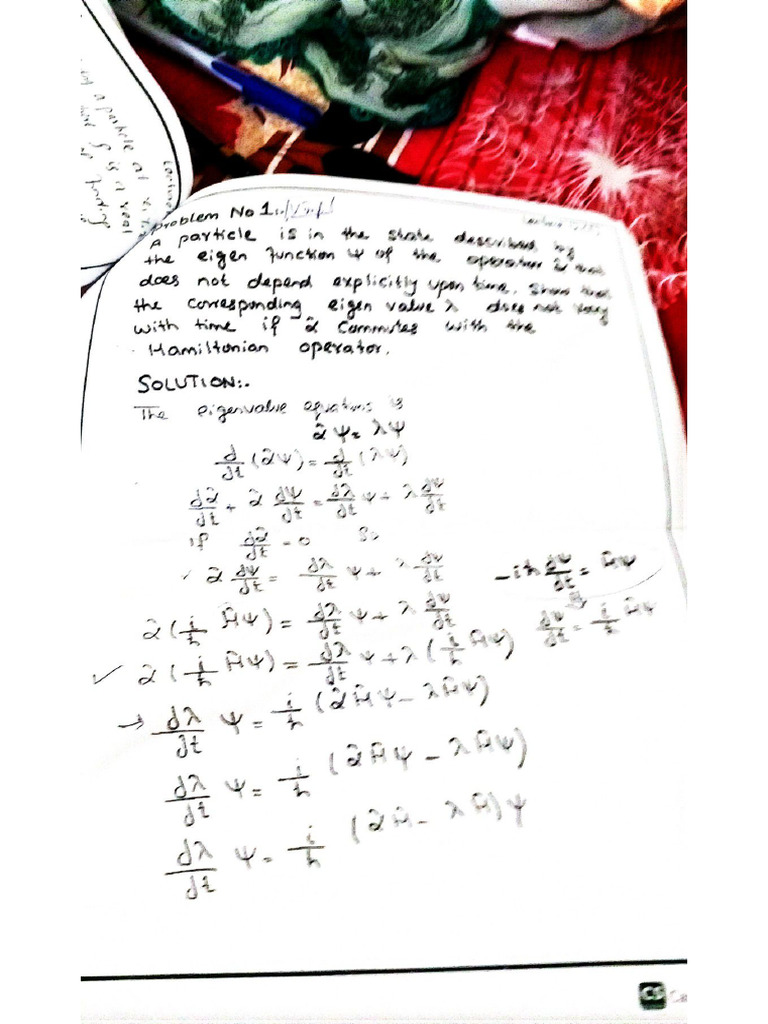 in a particle at
time f is a real
Problem No 1:.
A particle is in the state described by
the eigen function Ψ of the operator α̂ that
does not depend explicitly upon time. Show that
the corresponding eigen value λ does not vary
with time if α̂ Commutes with the
Hamiltonian operator.
SOLUTION:.
The eigenvalue equations is
α̂ Ψ = λΨ
d/dt (α̂Ψ) = d/dt (λΨ)
dα̂/dt + α̂ dΨ/dt = dλ/dt Ψ + λ dΨ/dt
If dα̂/dt = 0 So
α̂ dΨ/dt = dλ/dt Ψ + λ dΨ/dt
-iħ dΨ/dt = ĤΨ
α̂ (i/ħ ĤΨ) = dλ/dt Ψ + λ dΨ/dt
dΨ/dt = i/ħ ĤΨ
✓ α̂ (i/ħ ĤΨ) = dλ/dt Ψ + λ (i/ħ ĤΨ)
→ dλ/dt Ψ = i/ħ (α̂ĤΨ - λĤΨ)
dλ/dt Ψ = i/ħ (α̂ĤΨ - λĤΨ)
dλ/dt Ψ = i/ħ (α̂Ĥ - λĤ)Ψ
CS